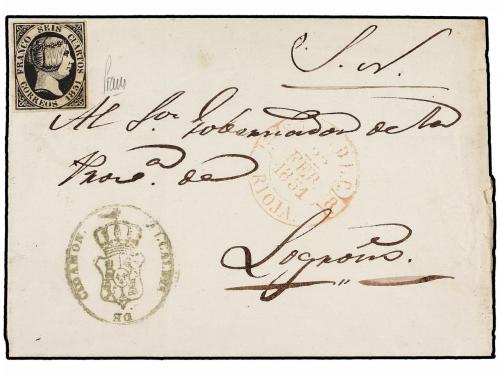 FRANCO SEIS CUARTOS
CORREOS 1851
S. N.
Al Sor. Gobernador de la
Prova. de
Logroño.
FEB
1851
RIOJA
ALCALDIA
DE
CIDAMON